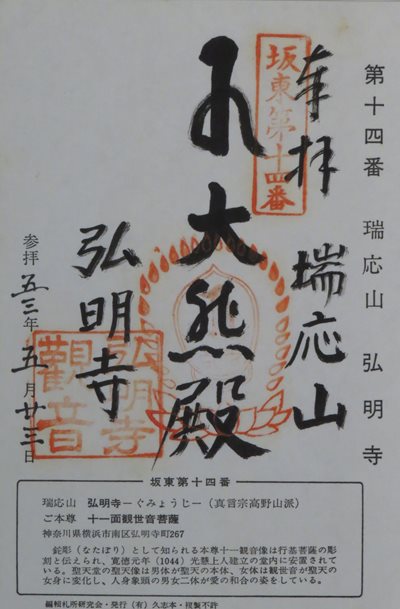 第十四番　瑞応山　弘明寺
奉拝　瑞応山
坂東第十四番
大悲殿
弘明寺
弘明寺
觀音
参拝五三年五月廿三日
坂東第十四番
瑞応山　弘明寺ーぐみょうじー（真言宗高野山派）
ご本尊　十一面観世音菩薩
神奈川県横浜市南区弘明寺町267
鉈彫（なたぼり）として知られる本尊十一観音像は行基菩薩の彫
刻と伝えられ、寛徳元年（1044）光慧上人建立の堂内に安置されて
いる。聖天堂の聖天像は男体が聖天の本体、女体は観世音が聖天の
女身に変化し、人身象頭の男女二体が愛の和合の姿をしている。
編輯札所研究会・発行（有）久志本・複製不許